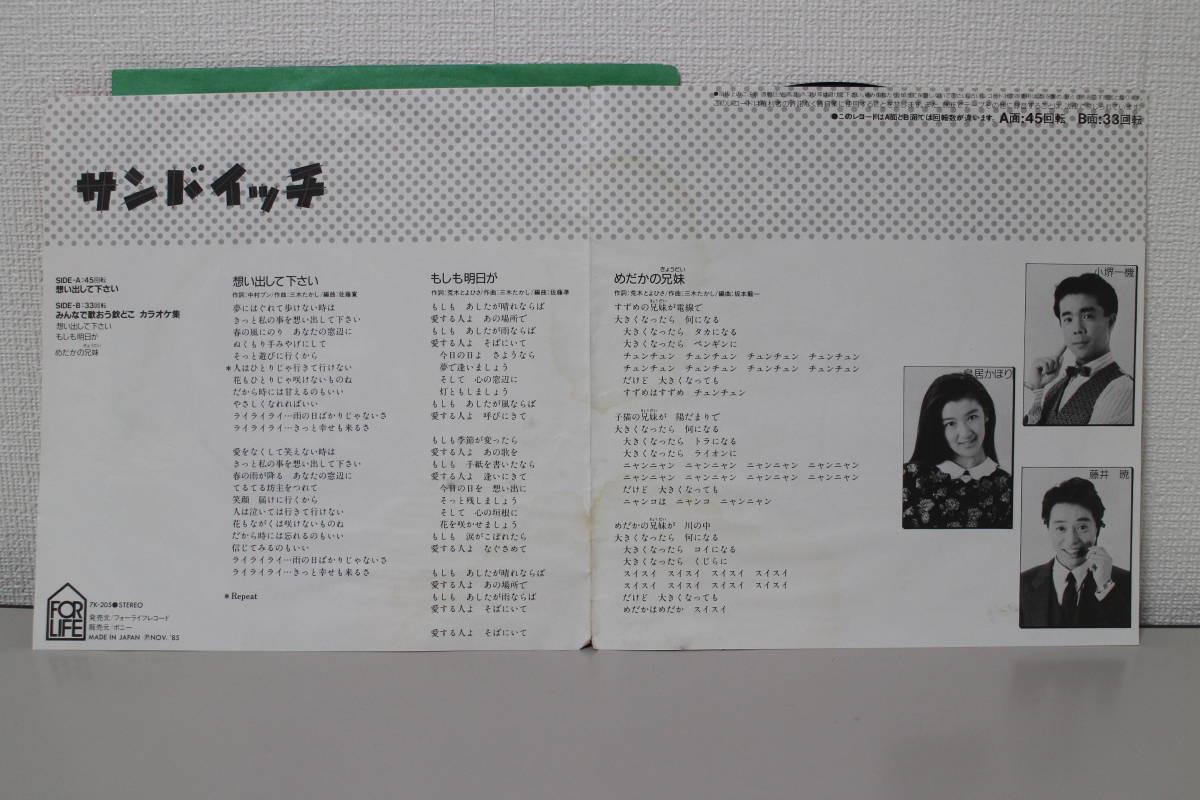 このレコードはA面とB面では回転数が違います。 A面:45回転 B面:33回転
サンドイッチ
SIDE-A:45回転
想い出して下さい
SIDE-B:33回転
みんなで歌おう欽どこ カラオケ集
想い出して下さい
もしも明日が
めだかの兄妹
きょうだい
7K-205●STEREO
発売元/フォーライフレコード
販売元/ポニー
MADE IN JAPAN ℗NOV. '85
FOR
LIFE
想い出して下さい
作詞:中村ブン/作曲:三木たかし/編曲:佐藤寛
夢にはぐれて歩けない時は
きっと私の事を想い出して下さい
春の風にのり あなたの窓辺に
ぬくもり手みやげにして
そっと遊びに行くから
*人はひとりじゃ行きて行けない
花もひとりじゃ咲けないものね
だから時には甘えるのもいい
やさしくなれればいい
ライライライ…雨の日ばかりじゃないさ
ライライライ…きっと幸せも来るさ
愛をなくして笑えない時は
きっと私の事を想い出して下さい
春の雨が降る あなたの窓辺に
てるてる坊主をつれて
笑顔 届けに行くから
人は泣いては行きて行けない
花もながくは咲けないものね
だから時には忘れるのもいい
信じてみるのもいい
ライライライ…雨の日ばかりじゃないさ
ライライライ…きっと幸せも来るさ
*Repeat
もしも明日が
作詞:荒木とよひさ/作曲:三木たかし/編曲:佐藤準
もしも あしたが晴れならば
愛する人よ あの場所で
もしも あしたが雨ならば
愛する人よ そばにいて
今日の日よ さようなら
夢で逢いましょう
そして 心の窓辺に
灯ともしましょう
もしも あしたが風ならば
愛する人よ 呼びにきて
もしも季節が変ったら
愛する人よ あの歌を
もしも 手紙を書いたなら
愛する人よ 逢いにきて
今日の日を 想い出に
そっと残しましょう
そして 心の垣根に
花を咲かせましょう
もしも 涙がこぼれたら
愛する人よ なぐさめて
もしも あしたが晴れならば
愛する人よ あの場所で
もしも あしたが雨ならば
愛する人よ そばにいて
愛する人よ そばにいて
きょうだい
めだかの兄妹
作詞:荒木とよひさ/作曲:三木たかし/編曲:坂本龍一
すずめの兄妹が電線で
大きくなったら 何になる
大きくなったら タカになる
大きくなったら ペンギンに
チュンチュン チュンチュン チュンチュン チュンチュン
チュンチュン チュンチュン チュンチュン チュンチュン
だけど 大きくなっても
すずめはすずめ チュンチュン
子猫の兄妹が 陽だまりで
大きくなったら 何になる
大きくなったら トラになる
大きくなったら ライオンに
ニャンニャン ニャンニャン ニャンニャン ニャンニャン
ニャンニャン ニャンニャン ニャンニャン ニャンニャン
だけど 大きくなっても
ニャンコは ニャンコ ニャンニャン
めだかの兄妹が 川の中
大きくなったら 何になる
大きくなったら コイになる
大きくなったら くじらに
スイスイ スイスイ スイスイ スイスイ
スイスイ スイスイ スイスイ スイスイ
だけど 大きくなっても
めだかはめだか スイスイ
小堺一機
鳥居かほり
藤井 暁